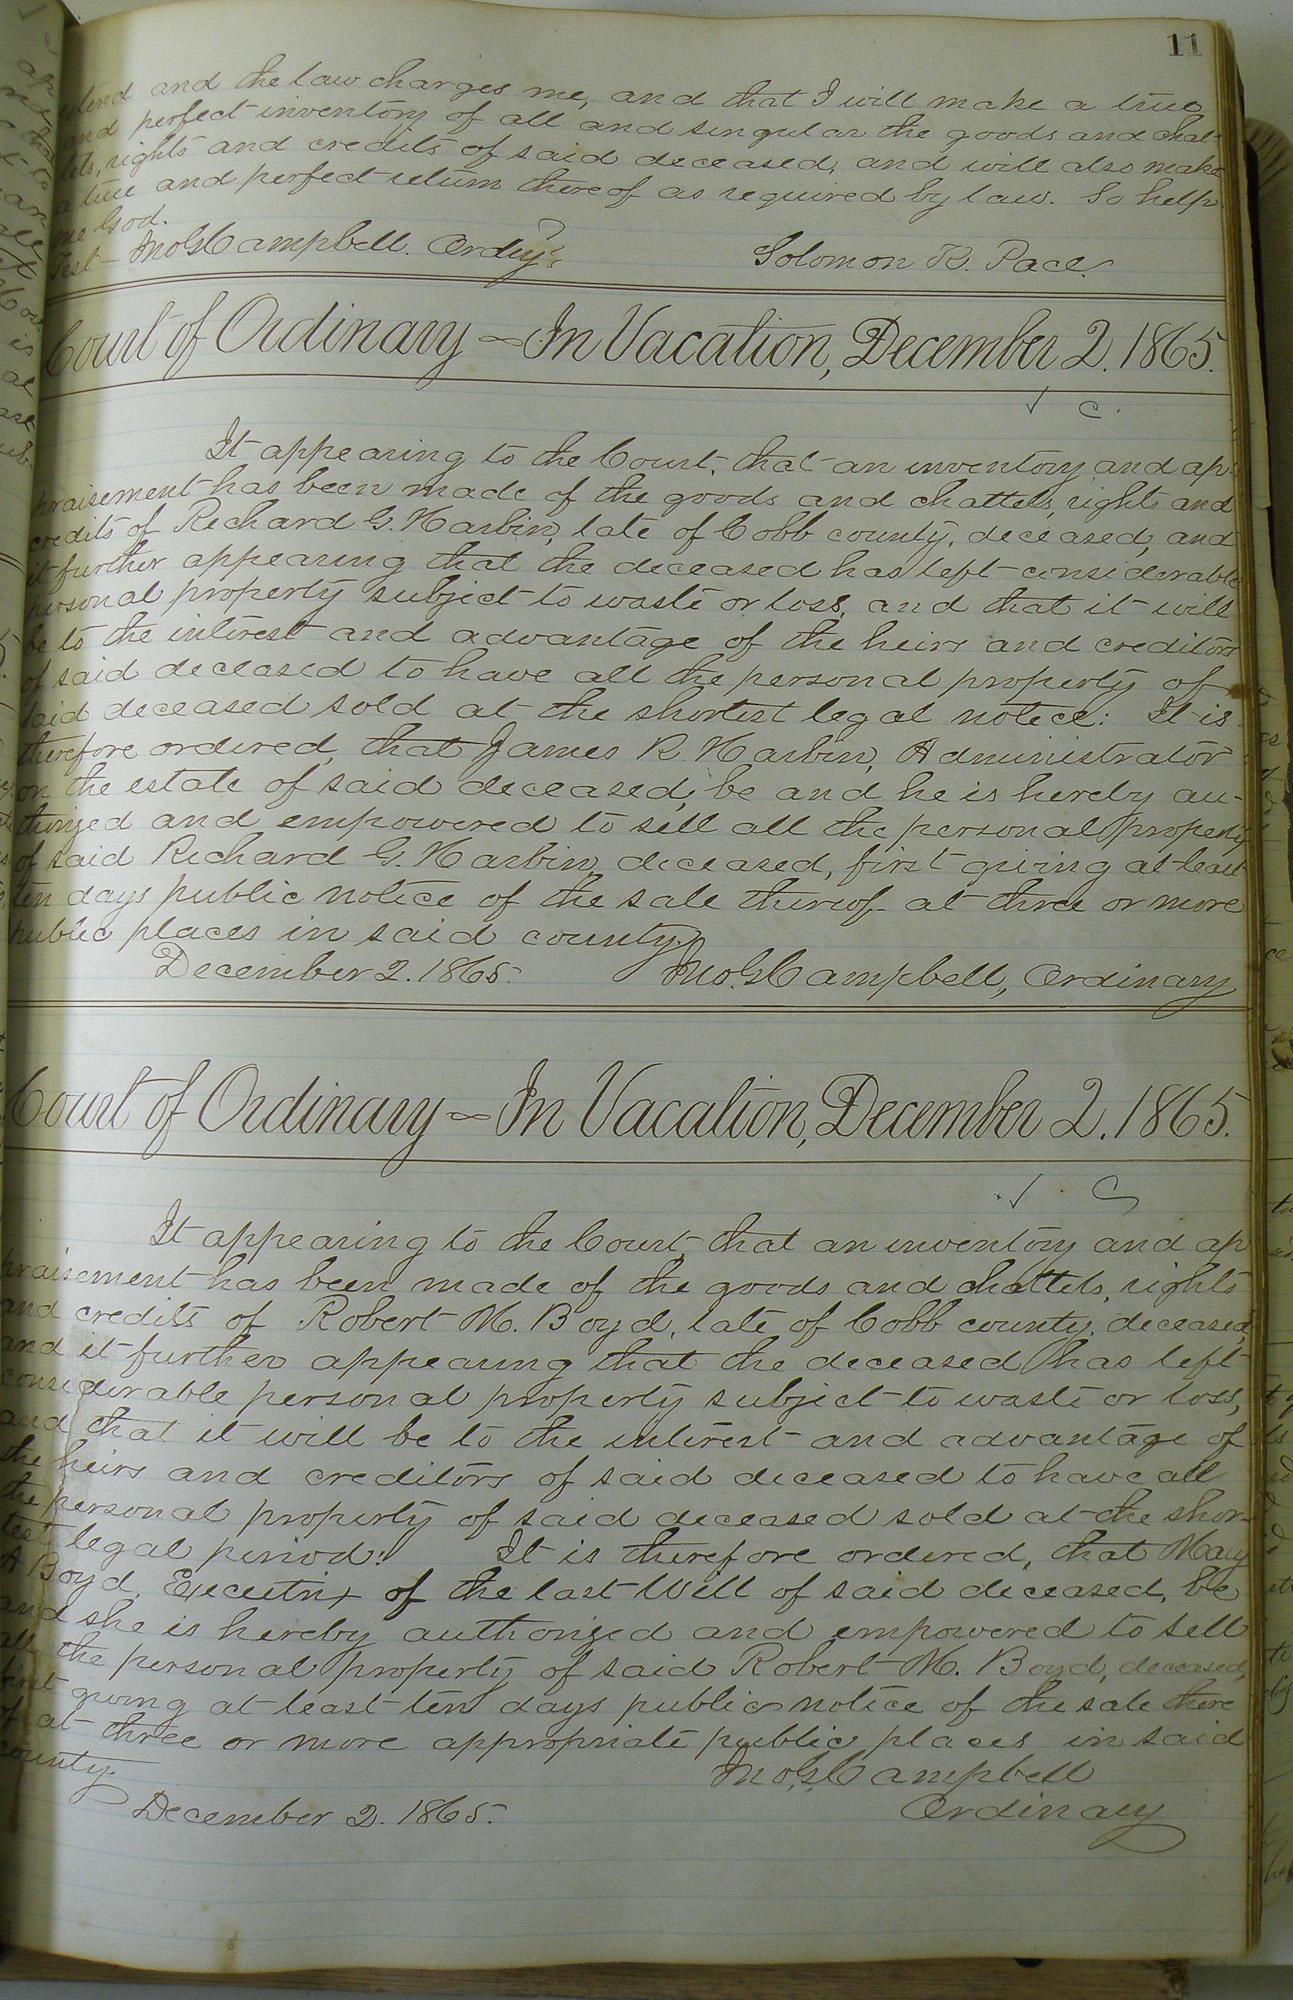 11
extend and the law charges me, and that I will make a true
and perfect inventory of all and singular the goods and chat-
tels, rights and credits of said deceased, and will also make
a true and perfect return thereof as required by law. So help
me God.
Test- Jno. G. Campbell. Ordny. Solomon K. Pace.
Court of Ordinary - In Vacation, December 2. 1865.
√ C.
It appearing to the Court, that an inventory and ap-
praisement has been made of the goods and chattels, rights and
credits of Richard G. Harbin, late of Cobb county, deceased, and
it further appearing that the deceased has left considerable
personal property subject to waste or loss, and that it will
be to the interest and advantage of the heirs and creditors
of said deceased to have all the personal property of
said deceased sold at the shortest legal notice: It is
therefore ordered, that James R. Harbin, Administrator
on the estate of said deceased, be and he is hereby au-
thorized and empowered to sell all the personal property
of said Richard G. Harbin, deceased, first giving at least
ten days public notice of the sale thereof at three or more
public places in said county.
December 2. 1865. Jno. G. Campbell, Ordinary
Court of Ordinary - In Vacation, December 2. 1865.
√ C
It appearing to the Court, that an inventory and ap
praisement has been made of the goods and chattels, rights
and credits of Robert M. Boyd, late of Cobb county, deceased,
and it further appearing that the deceased has left
considerable personal property subject to waste or loss,
and that it will be to the interest and advantage of
the heirs and creditors of said deceased to have all
the personal property of said deceased sold at the shor-
test legal period: It is therefore ordered, that Mary
A Boyd, Executrix of the last Will of said deceased, be
and she is hereby authorized and empowered to sell
all the personal property of said Robert M. Boyd, deceased,
first giving at least ten days public notice of the sale there
of at three or more appropriate public places in said
county.
Jno. G. Campbell
December 2. 1865. Ordinary